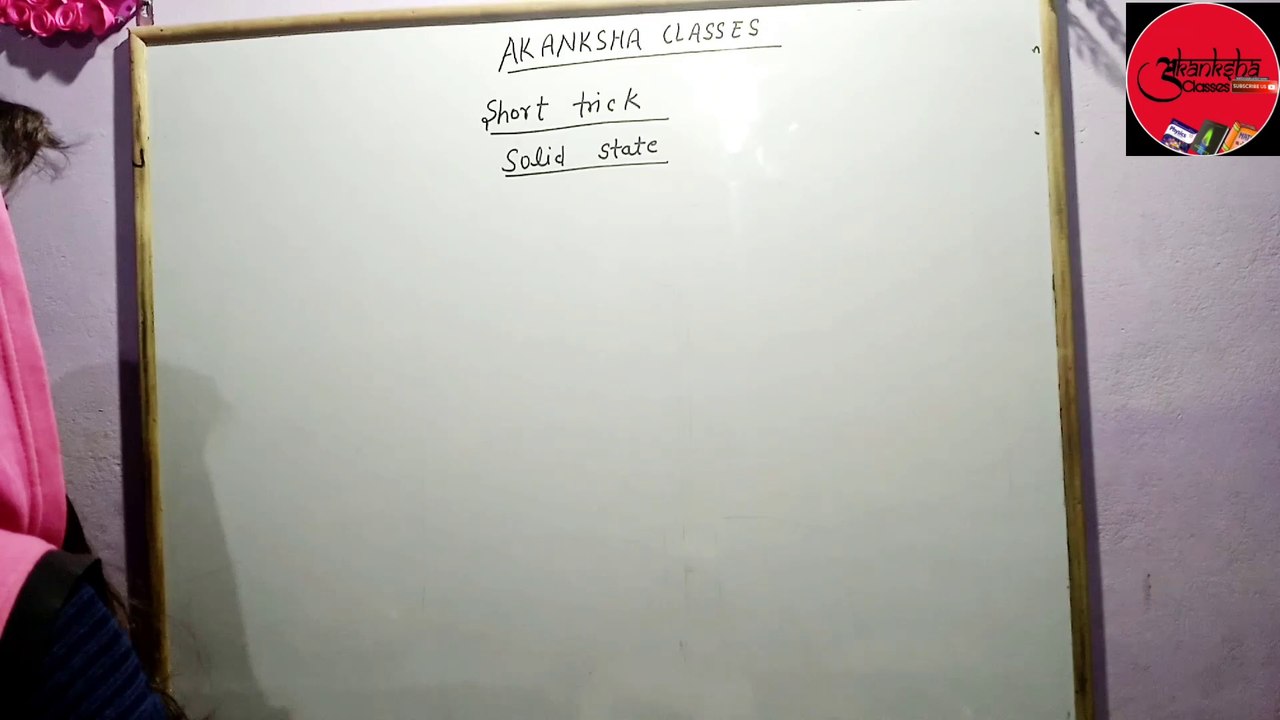 AKANKSHA CLASSES
Short trick
Solid state
Akanksha
Classes
SUBSCRIBE US
Physics